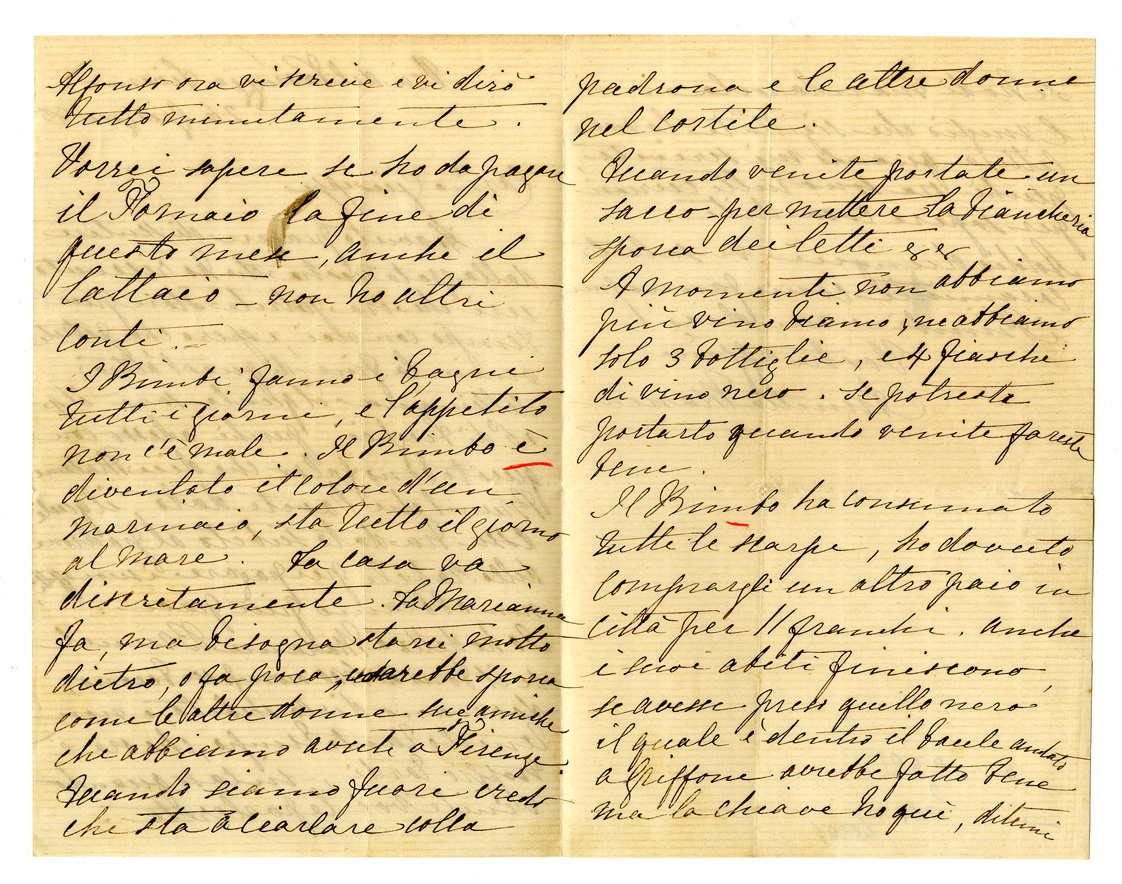 Alfonso ora vi scrive e vi dirà
tutto minutamente.
Vorrei sapere se ho da pagare
il Fornaio la fine di
questo mese, anche il
lattaio – non ho altri
conti. –
I Bimbi fanno i bagni
tutti i giorni, e l'appetito
non c'è male. Il Bimbo è
diventato il colore d'un
marinaio, sta tutto il giorno
al mare. La casa va
discretamente. La Marianna
fa, ma bisogna starci molto
dietro, o fa poca, sarebbe sporca
come le altre donne sue amiche
che abbiamo avute a Firenze.
Quando siamo fuori credo
che sta a ciarlare colla
padrona e le altre donne
nel cortile.
Quando venite portate un
sacco per mettere la biancheria
sporca dei letti
A momenti non abbiamo
più vino bianco, ne abbiamo
solo 3 bottiglie, e 4 fiaschi
di vino nero. Se potreste
portarlo quando venite fareste
bene.
Il Bimbo ha consumato
tutte le scarpe, ho dovuto
comprargli un altro paio in
città per 11 franchi. anche
i suoi abiti finiscono,
se avessi preso quello nero
il quale è dentro il baule andato
a Griffone avrebbe fatto bene
ma la chiave ho qui, ditemi